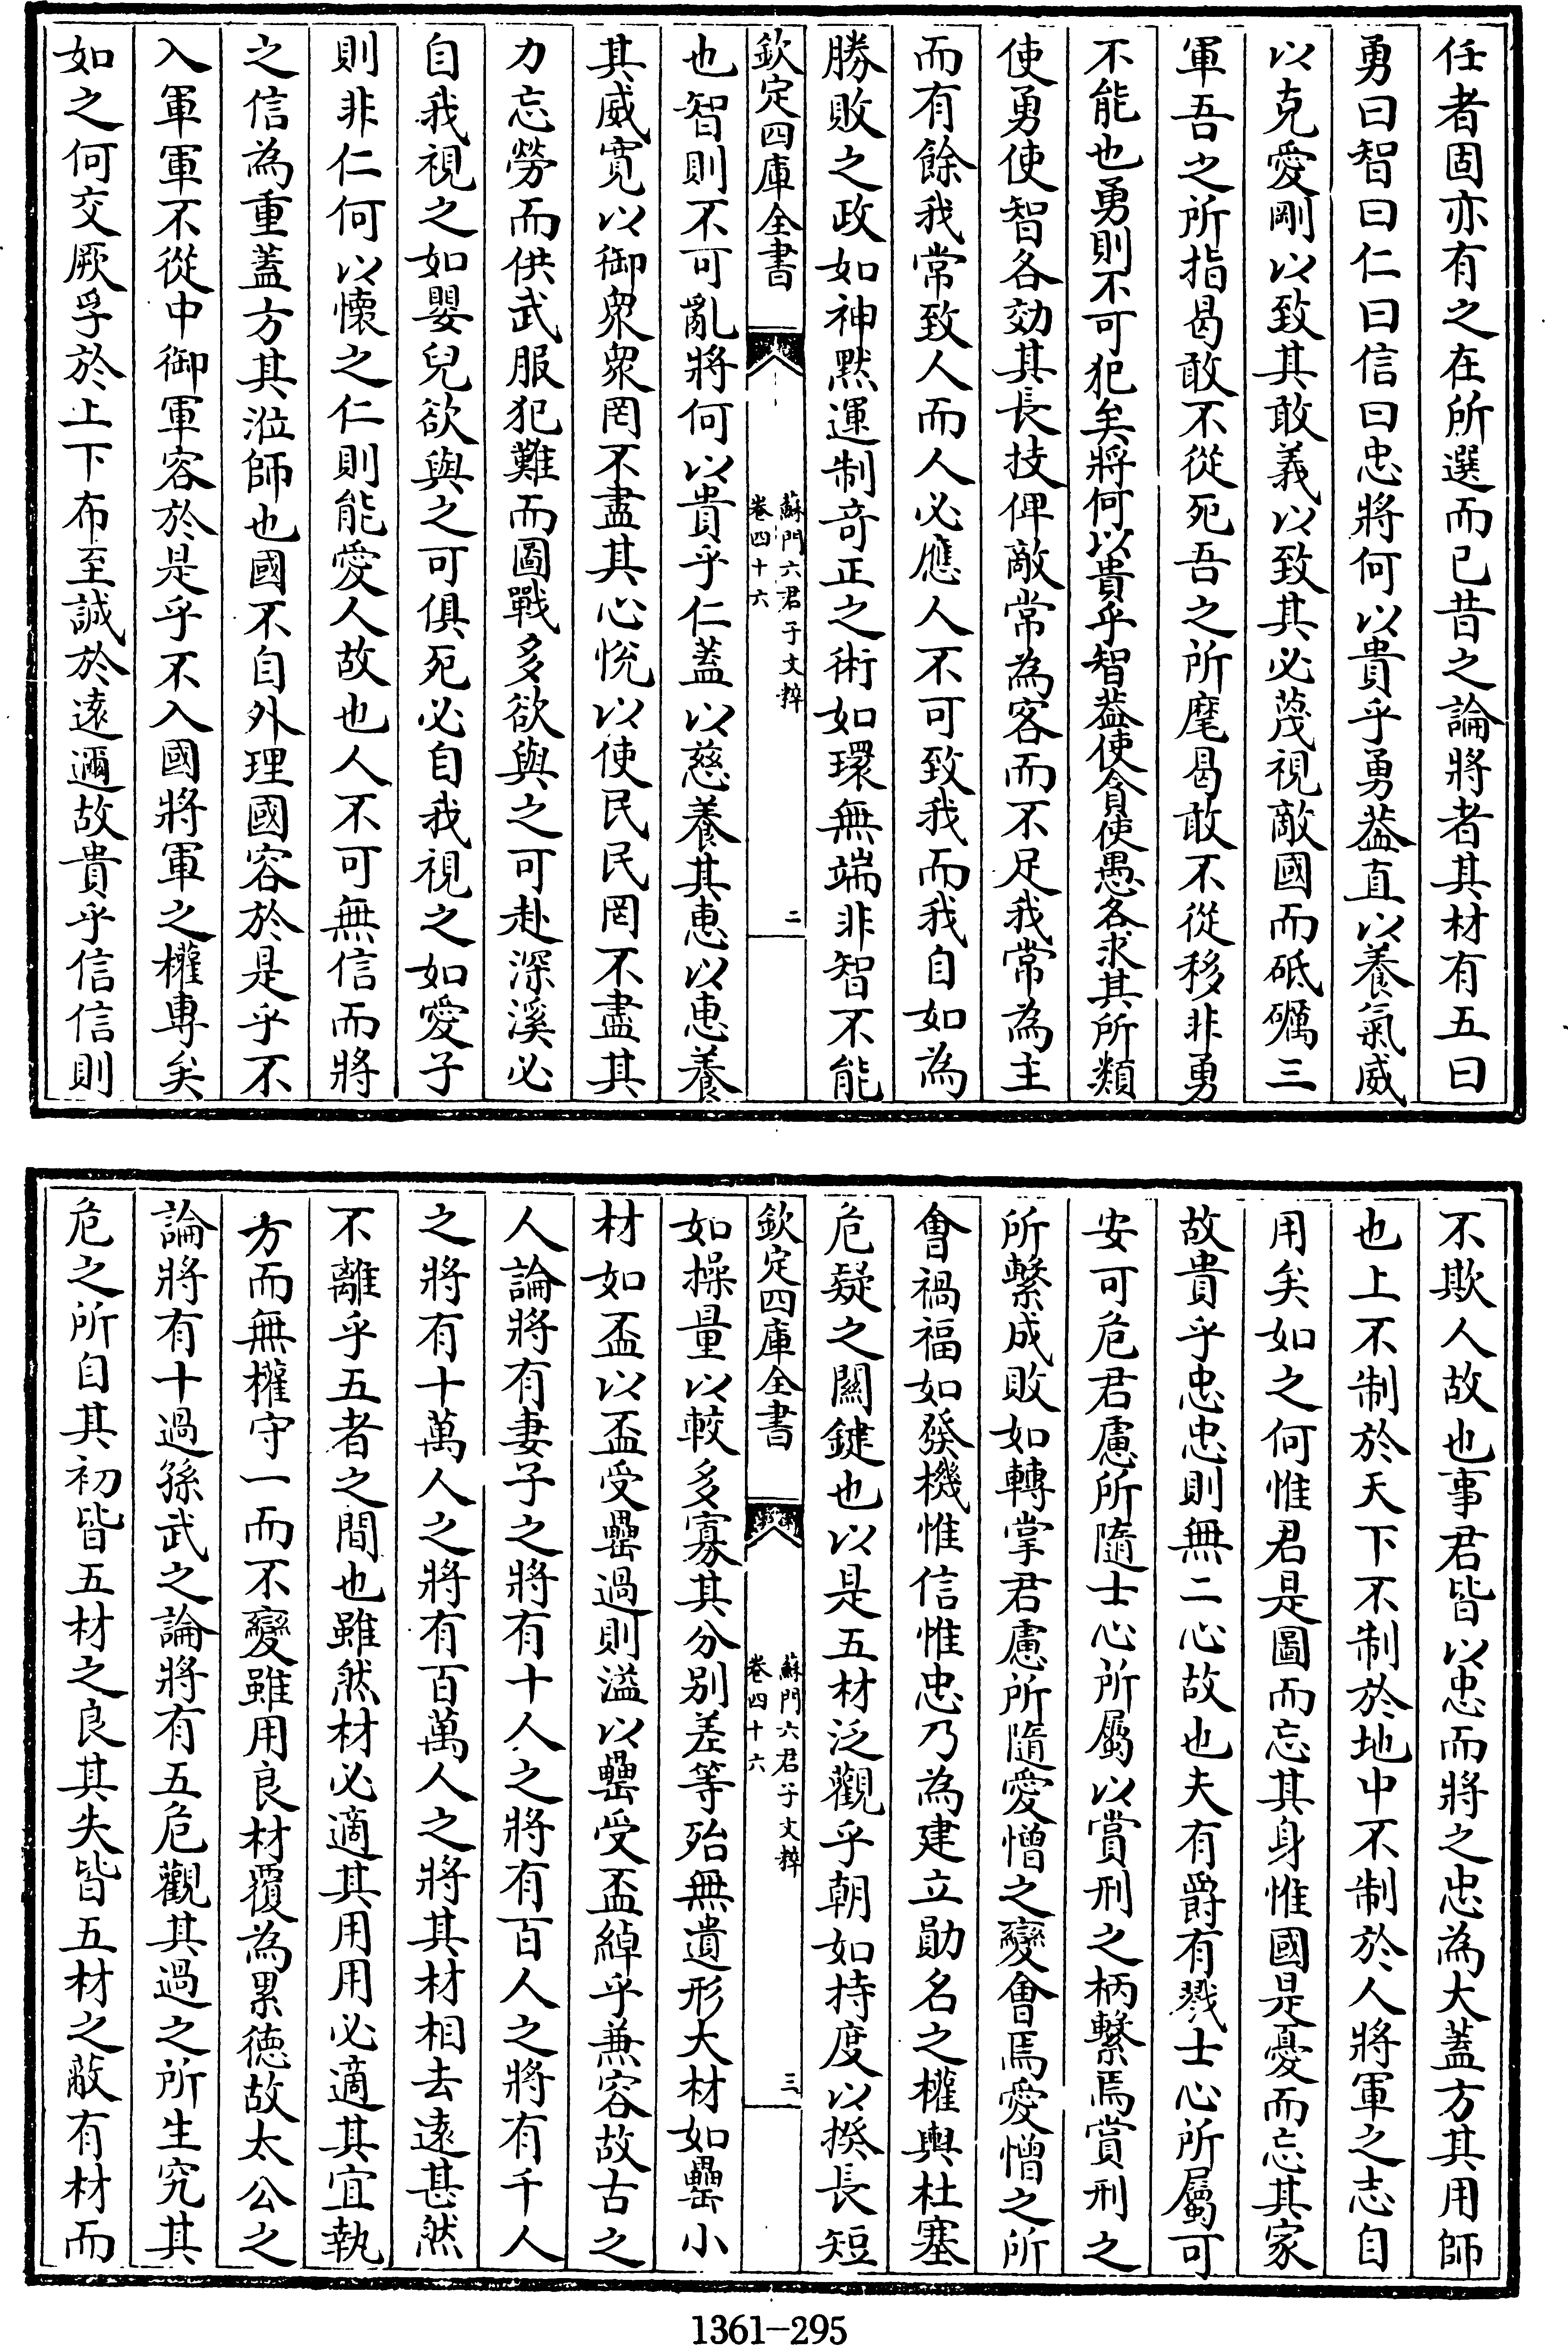 任者固亦有之在所選而已昔之論將者其材有五曰
勇曰智曰仁曰信曰忠將何以貴乎勇蓋直以養氣威
以克愛剛以致其敢義以致其必蔑視敵國而砥礪三
軍吾之所指曷敢不從死吾之所麾曷敢不從移非勇
不能也勇則不可犯矣將何以貴乎智蓋使貪使愚各求其所類
使勇使智各効其長技俾敵常為客而不足我常為主
而有餘我常致人而人必應人不可致我而我自如為
勝敗之政如神默運制奇正之術如環無端非智不能
欽定四庫全書
蘇門六君子文粹
卷四十六
二
也智則不可亂將何以貴乎仁蓋以慈養其惠以惠養
其威寛以御衆衆罔不盡其心悅以使民民罔不盡其
力忘勞而供武服犯難而圖戰多欲與之可赴深溪必
自我視之如嬰兒欲與之可俱死必自我視之如愛子
則非仁何以懷之仁則能愛人故也人不可無信而將
之信為重蓋方其涖師也國不自外理國容於是乎不
入軍軍不從中御軍容於是乎不入國將軍之權專矣
如之何交厥孚於上下布至誠於遠邇故貴乎信信則
不欺人故也事君皆以忠而將之忠為大蓋方其用師
也上不制於天下不制於地中不制於人將軍之志自
用矣如之何惟君是圖而忘其身惟國是憂而忘其家
故貴乎忠忠則無二心故也夫有爵有戮士心所屬可
安可危君慮所隨士心所屬以賞刑之柄繫焉賞刑之
所繫成敗如轉掌君慮所隨愛憎之變會焉愛憎之所
會禍福如發機惟信惟忠乃為建立勛名之權輿杜塞
危疑之關鍵也以是五材泛觀乎朝如持度以揆長短
欽定四庫全書
蘇門六君子文粹
卷四十六
三
如操量以較多寡其分別差等殆無遺形大材如罍小
材如盃以盃受罍過則溢以罍受盃綽乎兼容故古之
人論將有妻子之將有十人之將有百人之將有千人
之將有十萬人之將有百萬人之將其材相去遠甚然
不離乎五者之間也雖然材必適其用用必適其宜執
方而無權守一而不變雖用良材覆為累德故太公之
論將有十過孫武之論將有五危觀其過之所生究其
危之所自其初皆五材之良其失皆五材之蔽有材而
1361-295